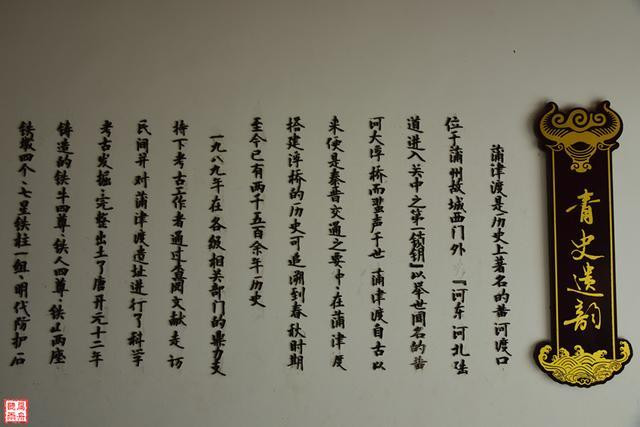 青史遗韵
蒲津渡是历史上著名的黄河渡口
位于蒲州故城西门外，「河东河北陆
道进入关中之第一锁钥」以举世闻名的黄
河大浮桥而蜚声千世 蒲津渡自古以
来便是秦晋交通之要冲、在蒲津渡
搭建浮桥的历史可追溯到春秋时期
至今已有两千五百余年历史
一九八九年在各级相关部门的鼎力支
持下考古工作者通过查阅文献走访
民间并对蒲津渡遗址进行了科学
考古发掘、完整出土了唐开元十二年
铸造的铁牛四尊、铁人四尊、铁山两座
铁墩四个、七星铁柱一组、明代防护石